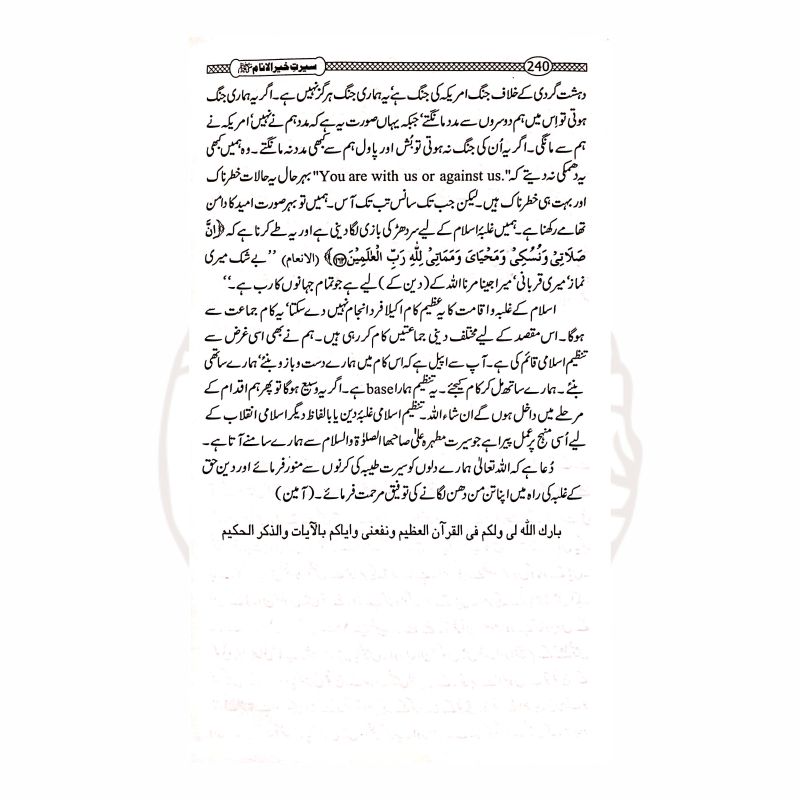 240
سیرتِ خیرالانام ﷺ
دہشت گردی کے خلاف جنگ امریکہ کی جنگ ہے‘ یہ ہماری جنگ ہرگز نہیں ہے۔ اگر یہ ہماری جنگ
ہوتی تو اس میں ہم دوسروں سے مدد مانگتے‘ جبکہ یہاں صورت یہ ہے کہ مدد ہم نے نہیں‘ امریکہ نے
ہم سے مانگی۔ اگر یہ اُن کی جنگ نہ ہوتی تو بُش اور پاول ہم سے کبھی مدد نہ مانگتے۔ وہ ہمیں کبھی
یہ دھمکی نہ دیتے کہ "You are with us or against us." بہرحال یہ حالات خطرناک
اور بہت ہی خطرناک ہیں۔ لیکن جب تک سانس تب تک آس۔ ہمیں تو بہرصورت امید کا دامن
تھامے رکھنا ہے۔ ہمیں غلبۂ اسلام کے لیے سر دھڑ کی بازی لگا دینی ہے اور یہ طے کرنا ہے کہ ﴿اِنَّ
صَلَاتِیْ وَنُسُکِیْ وَمَحْیَایَ وَمَمَاتِیْ لِلّٰہِ رَبِّ الْعٰلَمِیْنَ﴾ (الانعام) ’’بے شک میری
نماز‘ میری قربانی‘ میرا جینا مرنا اللہ کے (دین کے) لیے ہے جو تمام جہانوں کا رب ہے۔‘‘
اسلام کے غلبہ و اقامت کا یہ عظیم کام اکیلا فرد انجام نہیں دے سکتا‘ یہ کام جماعت سے
ہوگا۔ اس مقصد کے لیے مختلف دینی جماعتیں کام کر رہی ہیں۔ ہم نے بھی اسی غرض سے
تنظیم اسلامی قائم کی ہے۔ آپ سے اپیل ہے کہ اس کام میں ہمارے دست و بازو بنئے‘ ہمارے ساتھی
بنئے۔ ہمارے ساتھ مل کر کام کیجئے۔ یہ تنظیم ہمارا base ہے۔ اگر یہ وسیع ہوگا تو پھر ہم اقدام کے
مرحلے میں داخل ہوں گے ان شاء اللہ۔ تنظیم اسلامی غلبۂ دین یا بالفاظ دیگر اسلامی انقلاب کے
لیے اُسی منہج پر عمل پیرا ہے جو سیرت مطہرہ علیٰ صاحبھا الصلوٰۃ والسلام سے ہمارے سامنے آتا ہے۔
دُعا ہے کہ اللہ تعالیٰ ہمارے دلوں کو سیرت طیبہ کی کرنوں سے منور فرمائے اور دین حق
کے غلبہ کی راہ میں اپنا تن من دھن لگانے کی توفیق مرحمت فرمائے۔ (آمین)
بارك اللّٰه لی ولكم فی القرآن العظیم ونفعنی وایاكم بالآیات والذكر الحكیم